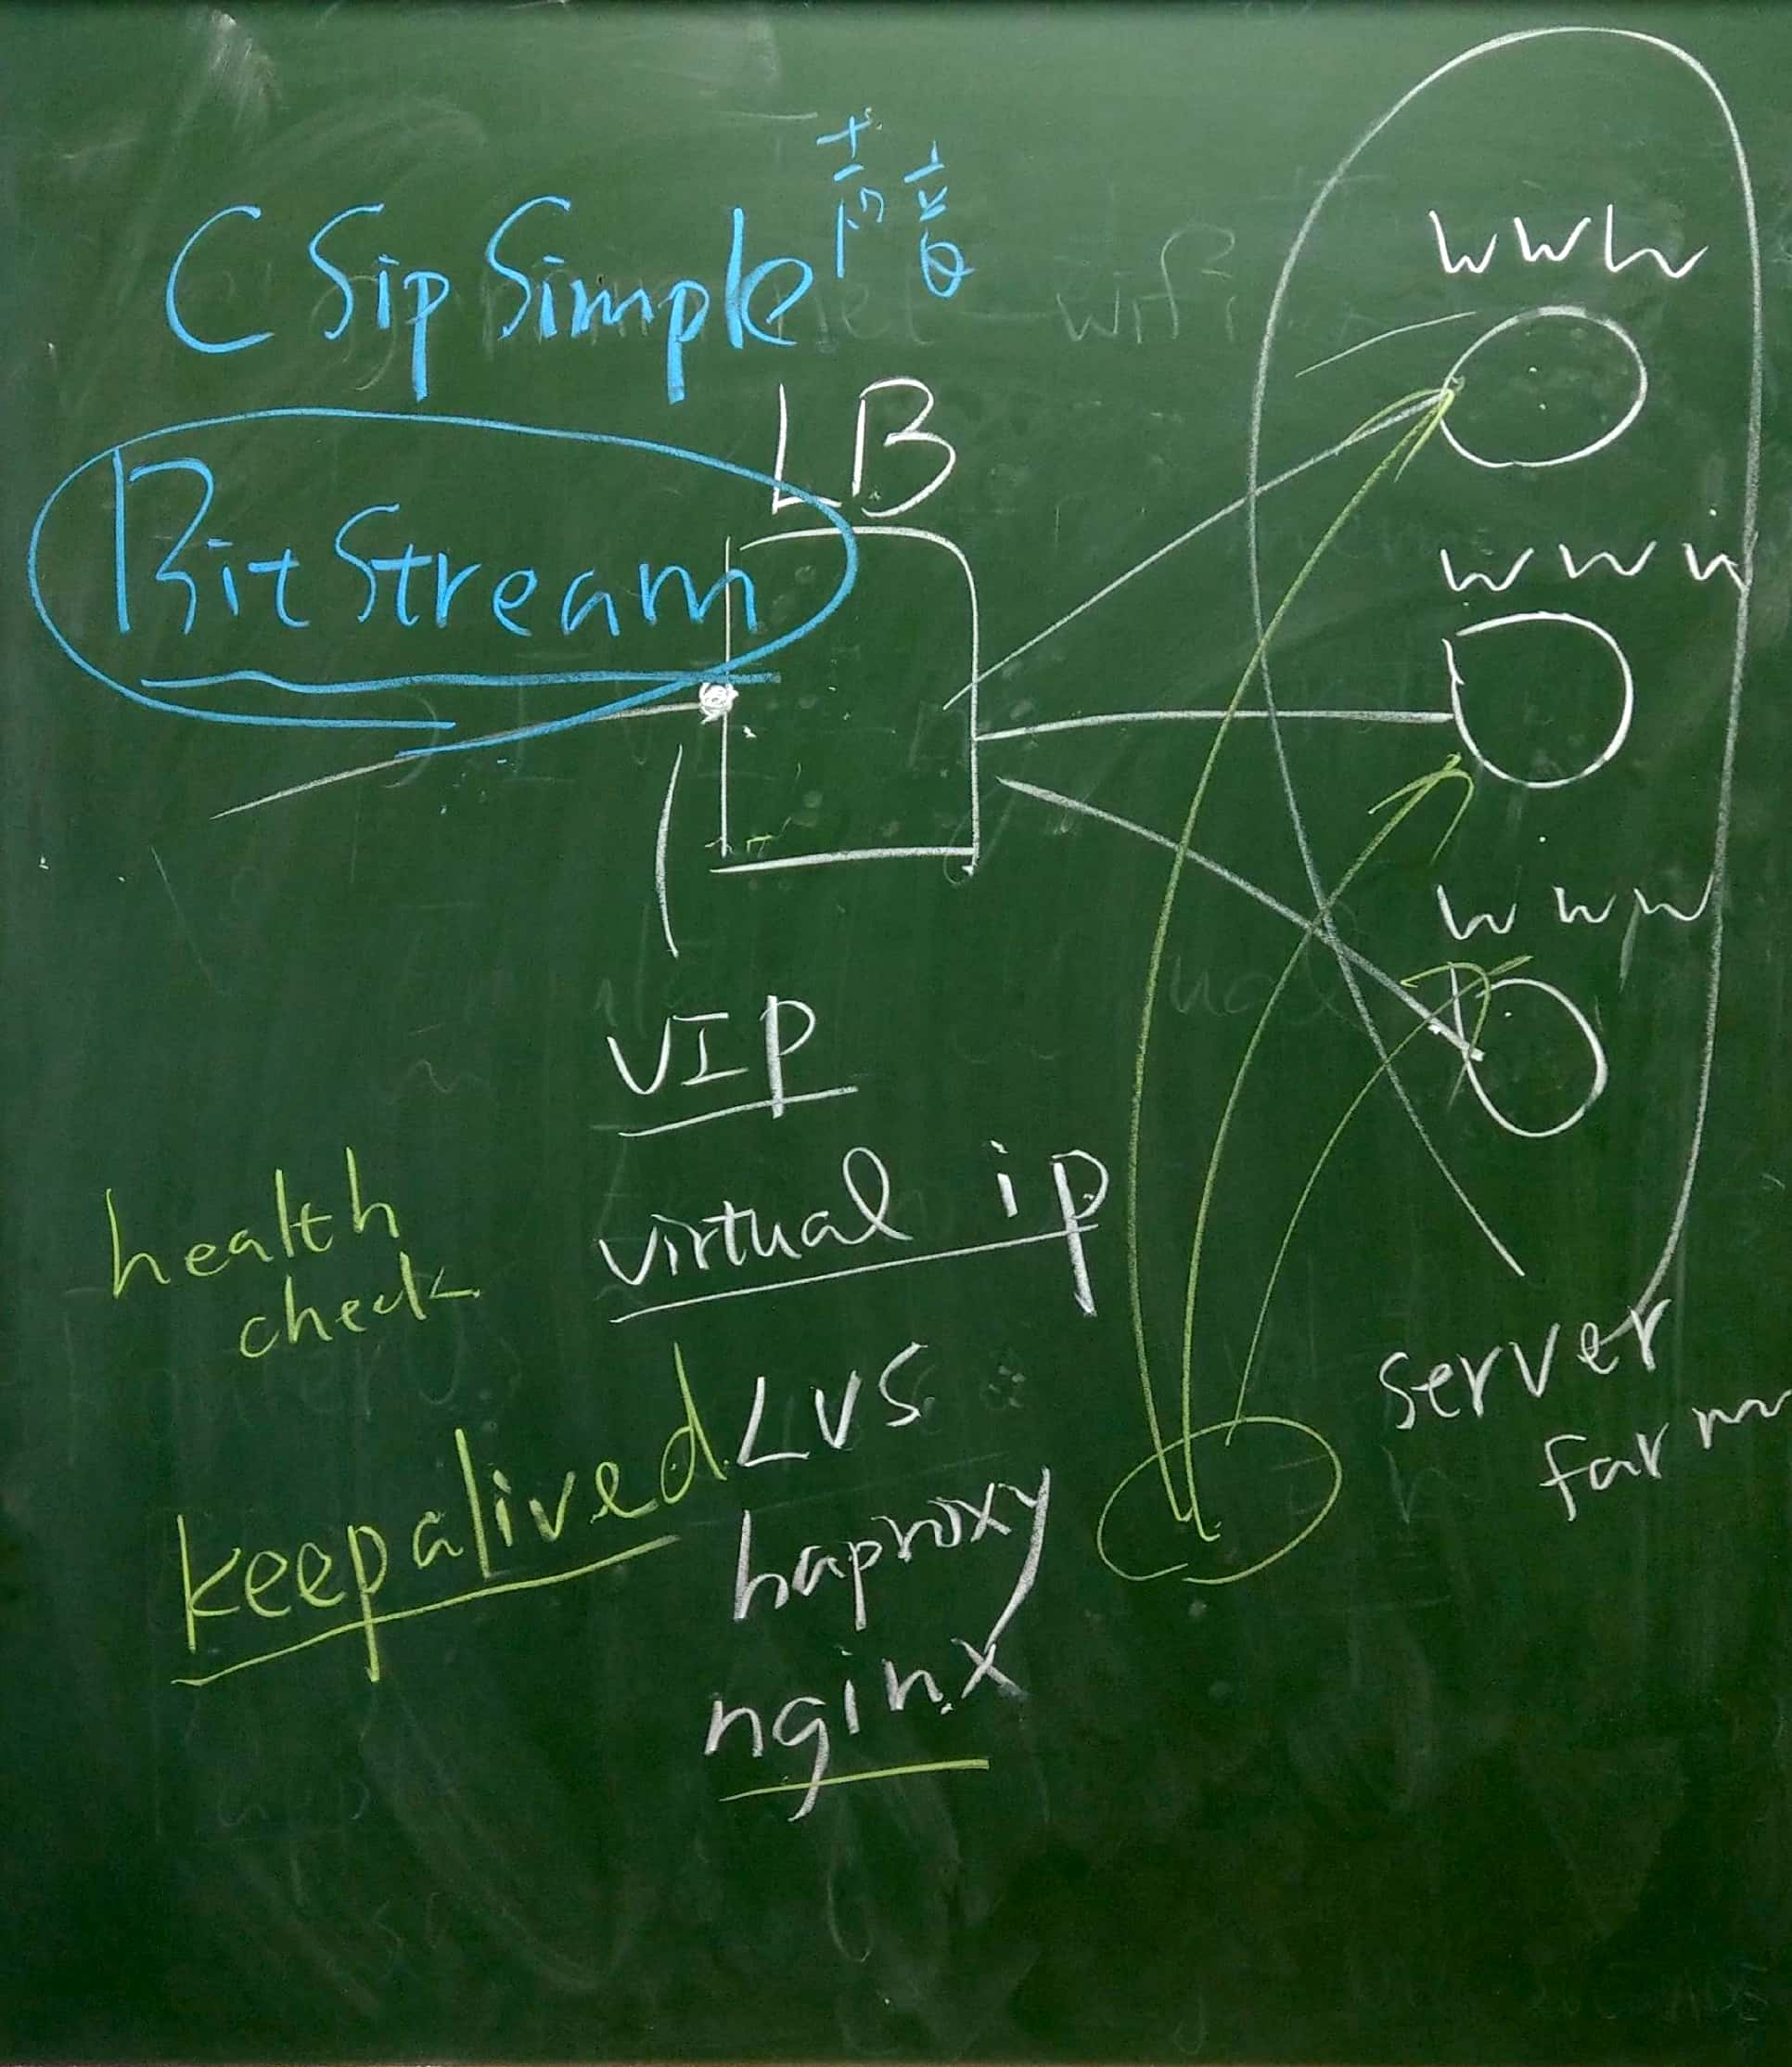 CSipSimple
LB
BitStream
www
www
www
VIP
virtual ip
health
check
keepalived
LVS
haproxy
nginx
server
farm